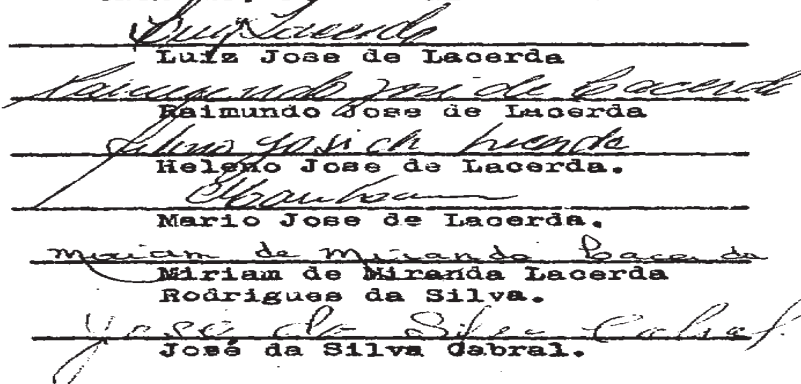 Luiz Lacerda
Luiz Jose de Lacerda
Raimundo José de Lacerda
Raimundo Jose de Lacerda
Heleno Jose de Lacerda.
Mario Jose de Lacerda.
Miriam de Miranda Lacerda
Miriam de Miranda Lacerda
Rodrigues da Silva.
José da Silva Cabral.
José da Silva Cabral.